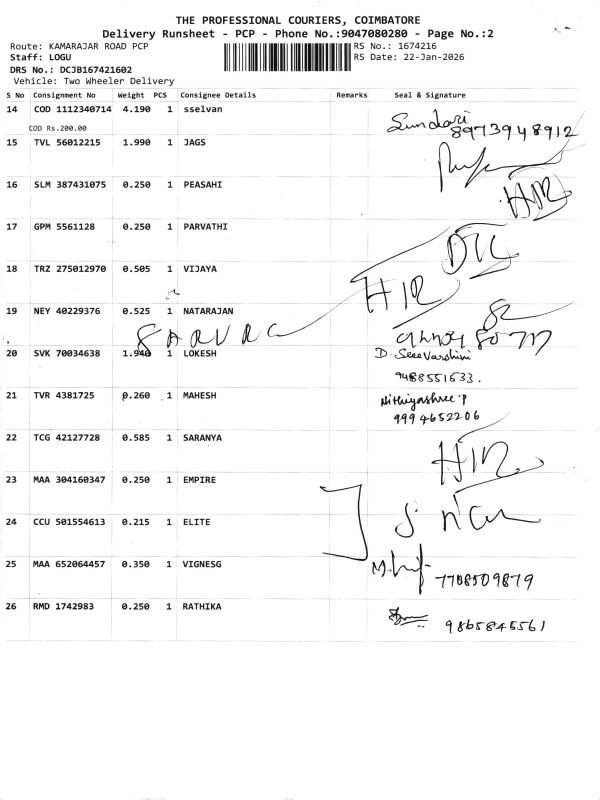 THE PROFESSIONAL COURIERS, COIMBATORE
Delivery Runsheet - PCP - Phone No.:9047080280 - Page No.:2
Route: KAMARAJAR ROAD PCP RS No.: 1674216
Staff: LOGU RS Date: 22-Jan-2026
DRS No.: DCJB167421602
Vehicle: Two Wheeler Delivery
S No Consignment No Weight PCS Consignee Details Remarks Seal & Signature
14 COD 1112340714 4.190 1 sselvan
Sundari
COD Rs.200.00
8973948912
15 TVL 56012215 1.990 1 JAGS
16 SLM 387431075 0.250 1 PEASAHI
H12
17 GPM 5561128 0.250 1 PARVATHI
18 TRZ 275012970 0.505 1 VIJAYA
H12
19 NEY 40229376 0.525 1 NATARAJAN
20 SVK 70034638 1.940 1 LOKESH D. Sreevarshini
9488551633.
21 TVR 4381725 0.260 1 MAHESH Nithiyashree.P
9994652206
22 TCG 42127728 0.585 1 SARANYA
H12
23 MAA 304160347 0.250 1 EMPIRE
24 CCU 501554613 0.215 1 ELITE
25 MAA 652064457 0.350 1 VIGNESG
7708509879
26 RMD 1742983 0.250 1 RATHIKA
9865845561